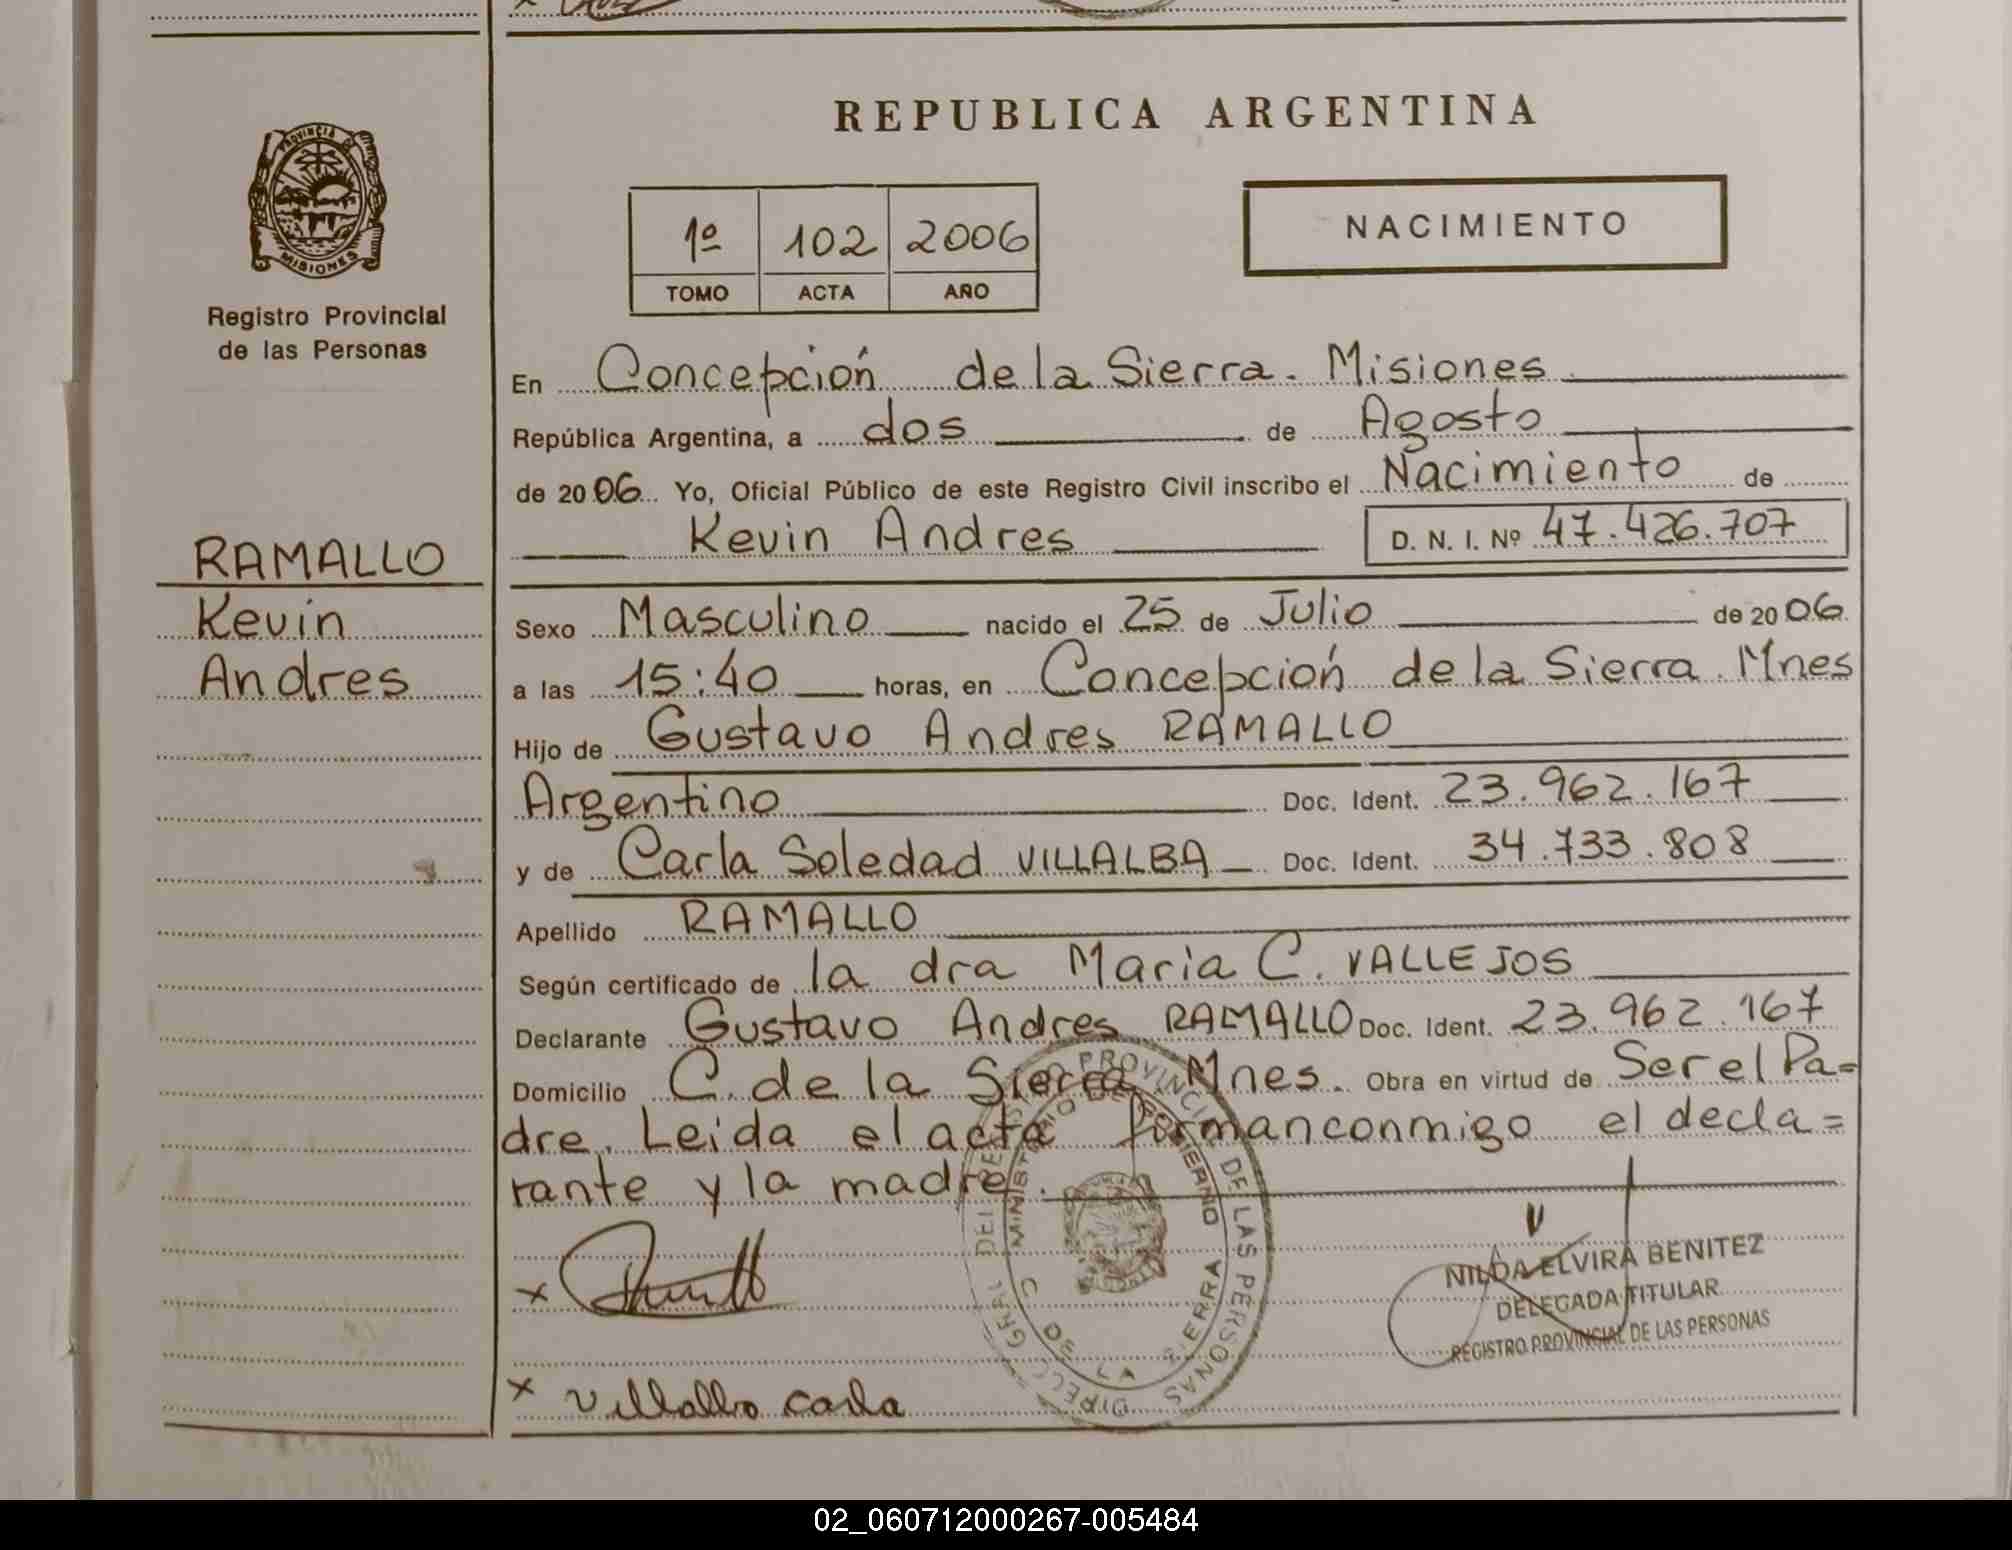 REPUBLICA ARGENTINA
PROVINCIA DE
MISIONES
Registro Provincial
de las Personas
1º 102 2006
TOMO ACTA AÑO
NACIMIENTO
En Concepción de la Sierra - Misiones
República Argentina, a dos de Agosto
de 2006 Yo, Oficial Público de este Registro Civil inscribo el Nacimiento de
Kevin Andres D. N. I. Nº 47.426.707
RAMALLO
Kevin
Andres
Sexo Masculino nacido el 25 de Julio de 2006
a las 15:40 horas, en Concepción de la Sierra. Mnes
Hijo de Gustavo Andres RAMALLO
Argentino Doc. Ident. 23.962.167
y de Carla Soledad VILLALBA Doc. Ident. 34.733.808
Apellido RAMALLO
Según certificado de la dra Maria C. VALLEJOS
Declarante Gustavo Andres RAMALLO Doc. Ident. 23.962.167
Domicilio C. de la Sierra Mnes. Obra en virtud de Ser el Pa=
dre. Leida el acta firman conmigo el decla=
rante y la madre.
NILDA ELVIRA BENITEZ
DELEGADA TITULAR
REGISTRO PROVINCIAL DE LAS PERSONAS
x
x Villalba Carla
02_060712000267-005484